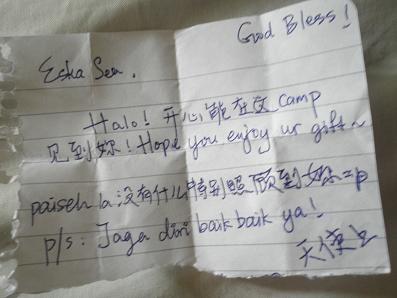 God Bless!
Esha Sen.
Halo! 开心能在这 camp
见到妳! Hope you enjoy ur gift~
paiseh la 没有什么特别照顾到妳=p
p/s: Jaga diri baik baik ya!
天使上